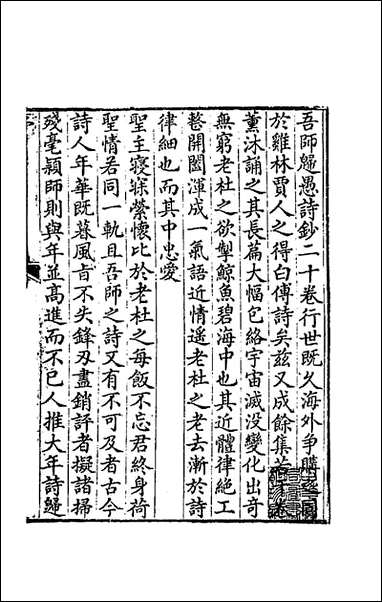 吾師歸愚詩鈔二十卷行世既久海外爭購
於雞林賈人之得白傅詩矣茲又成餘集
薰沐誦之其長篇大幅包絡宇宙滅没變化出奇
無窮老杜之欲掣鯨魚碧海中也其近體律絕工
整開闔渾成一氣語近情遥老杜之老去漸於詩
律細也而其中忠愛
聖主寢寐縈懷比於老杜之每飯不忘君終身荷
聖情若同一軌且吾師之詩又有不可及者古今
詩人年華既暮風旨不失鋒刃盡銷評者擬諸掃
殘毫穎師則與年並高進而不已人推大年詩歸